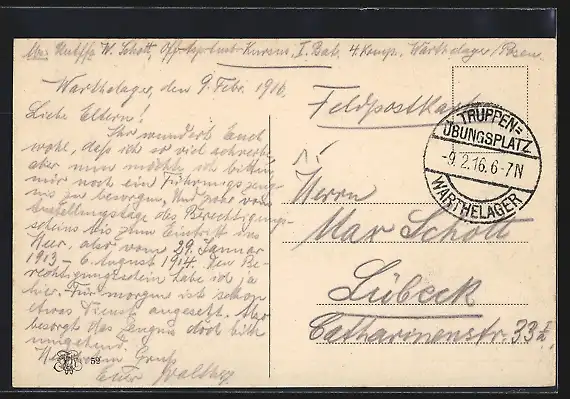 W. Schott, Kursus, I. Bat. 4. Komp. Warthelager/Posen
Warthelager, den 9. Febr. 1916.
Liebe Eltern!
Ihr wundert Euch
wohl, daß ich so viel schreibe
aber nun möchte ich bitten,
mir noch ein Führungszeug-
nis zu besorgen, und zwar vom
Ausstellungstage des Berechtigungs-
scheins bis zum Eintritt ins
Heer, also vom 29. Januar
1913 - 6. August 1914. Den Be-
rechtigungsschein habe ich ja
hier. Für morgen ist schon
etwas Dienst angesetzt. Also
besorgt das Zeugnis doch bitte
umgehend.
Gruß
Euer
59
Feldpostkarte
TRUPPEN=
ÜBUNGSPLATZ
-9.2.16.6-7N
WARTHELAGER
Herrn
Max Schott
Lübeck
Catharinenstr. 33a